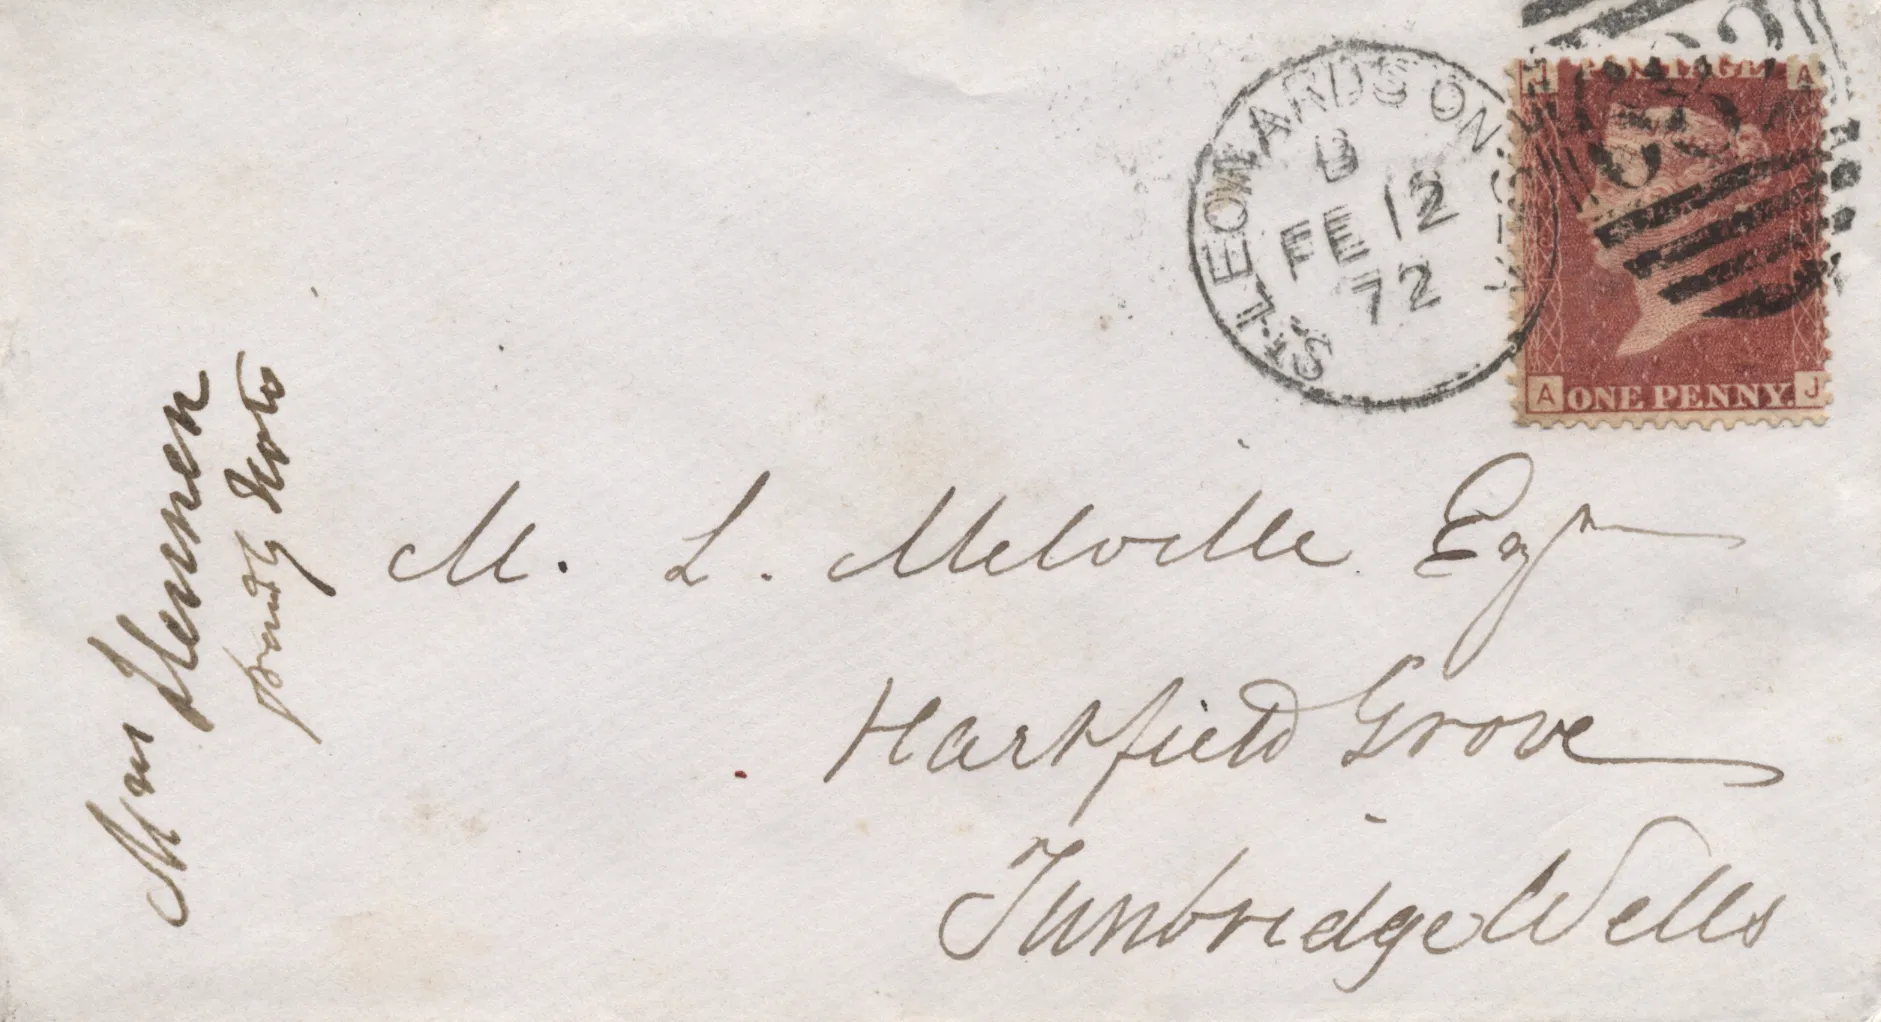 St. LEONARDS ON SEA
B
FE 12
72
J POSTAGE A
A ONE PENNY. J
M. L. Melville Esqr
Hartfield Grove
Tunbridge Wells